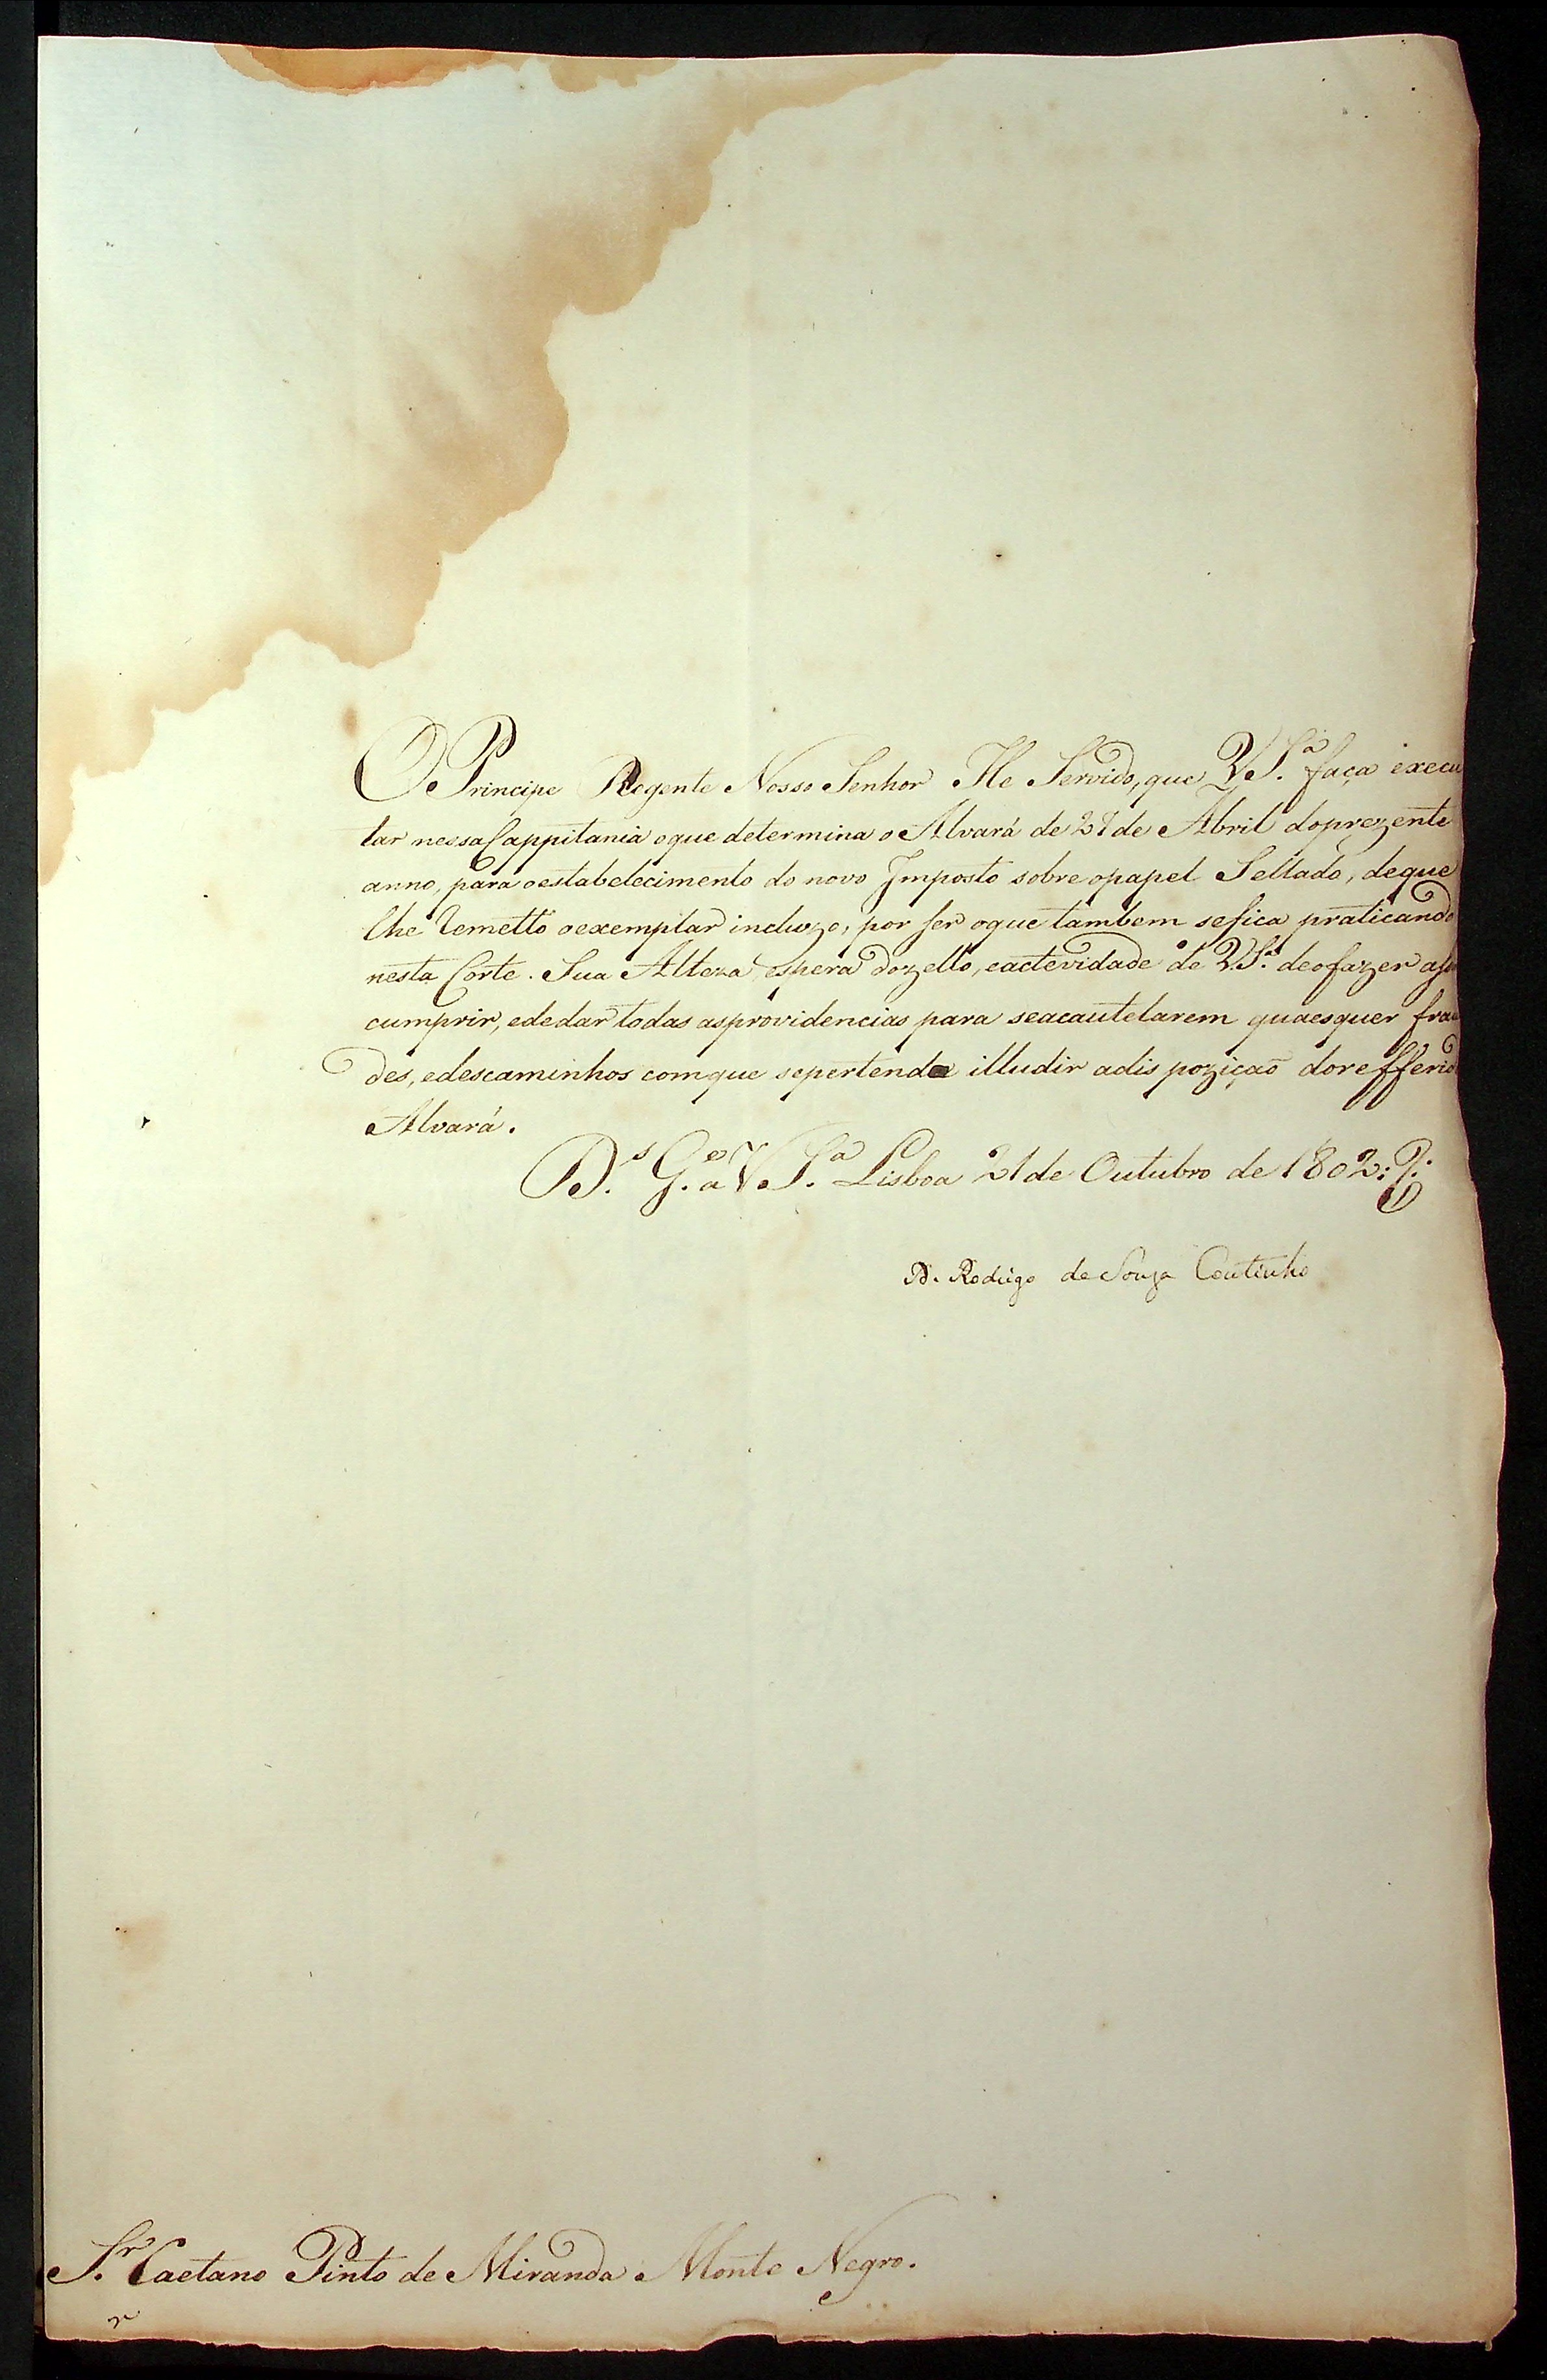 O Principe Regente Nosso Senhor He Servido, que V.S.ª faça execu
tar nessa Cappitania o que determina o Alvará de 27 de Abril do prezente
anno, para o estabelecimento do novo Imposto sobre o papel Sellado, de que
lhe remetto o exemplar incluzo, por ser o que tambem se fica praticando
nesta Corte. Sua Alteza espera do zello, e actevidade de V.S.ª de o fazer
cumprir, e de dar todas as providencias para se acautelarem quaesquer frau
des, e descaminhos com que se pertenda illudir a dispozição do refferido
Alvará.
D.s G.e a V.S.ª Lisboa 21 de Outubro de 1802.
D. Rodrigo de Souza Coutinho
S.r Caetano Pinto de Miranda Monte Negro.